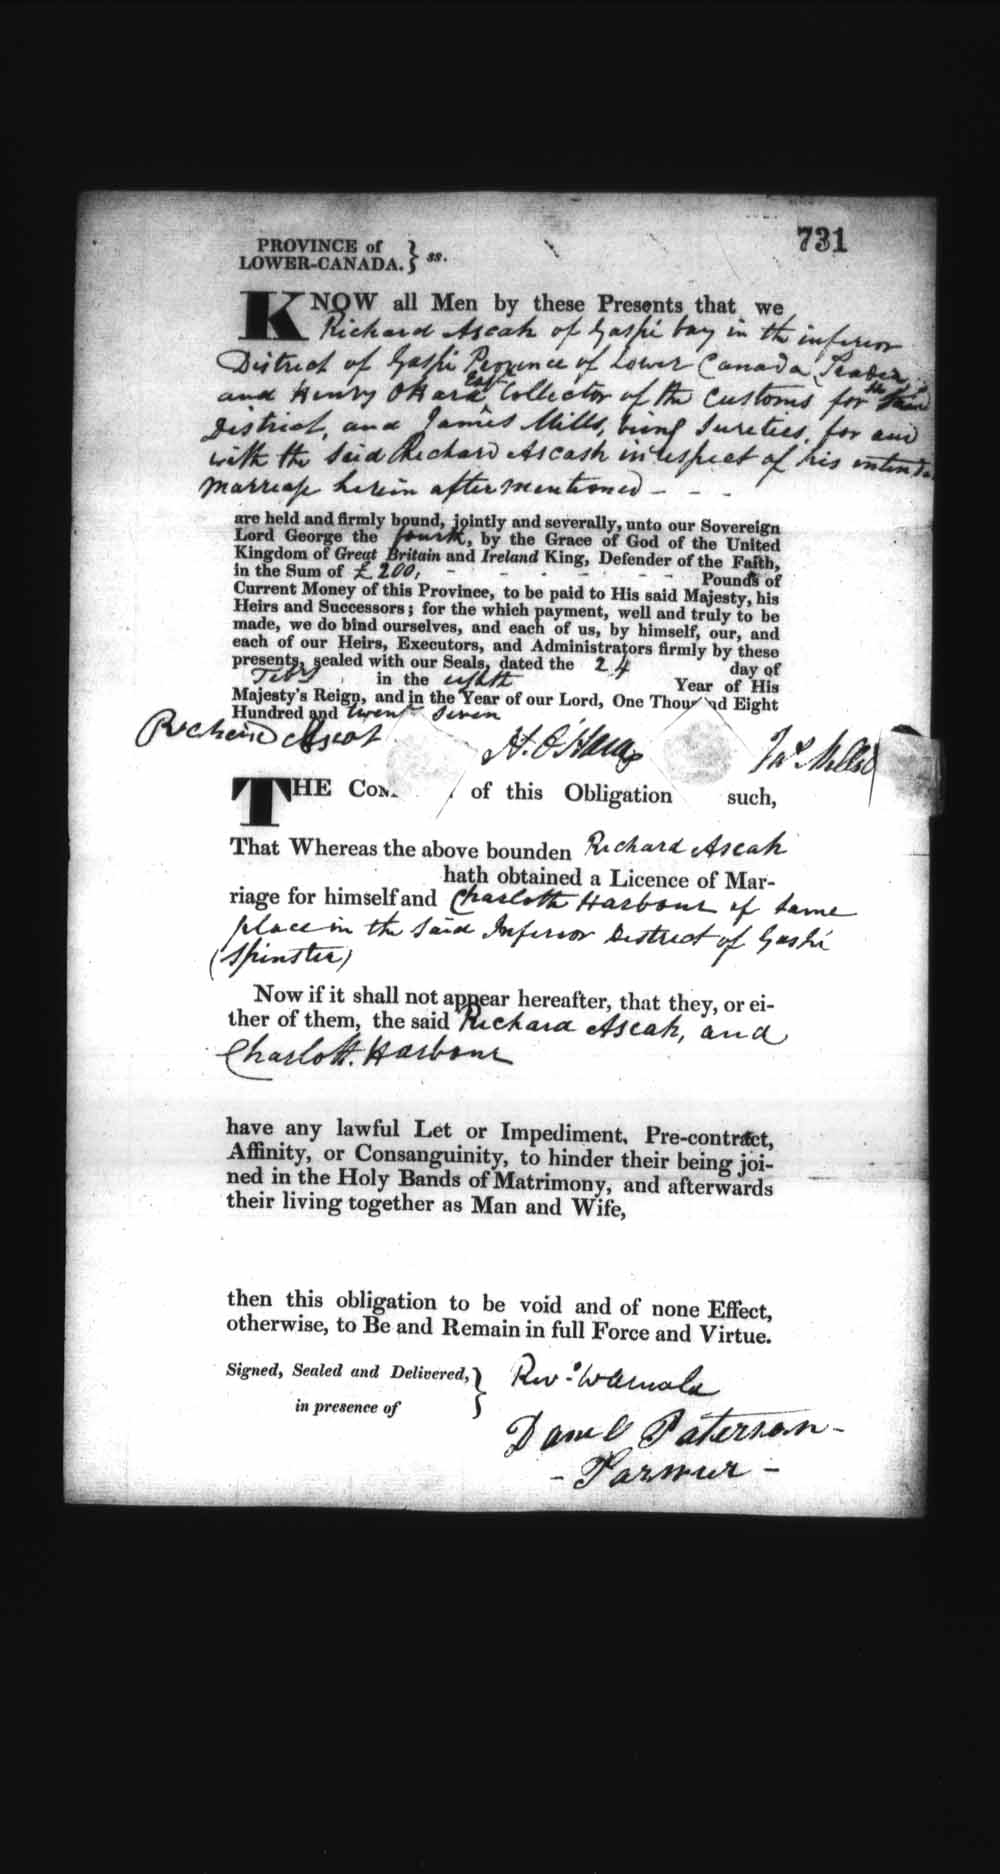 731
PROVINCE of
LOWER-CANADA. } ss.
KNOW all Men by these Presents that we
Richard Ascah of Gaspé bay in the inferior
District of Gaspé Province of Lower Canada Trader
and Henry OHara Esqr Collector of the Customs for the said
District, and James Mills, being Sureties, for and
with the Said Richard Ascash in respect of his intended
marriage herein after mentioned - - -
are held and firmly bound, jointly and severally, unto our Sovereign
Lord George the fourth, by the Grace of God of the United
Kingdom of Great Britain and Ireland King, Defender of the Faith,
in the Sum of £200, - - - - - - Pounds of
Current Money of this Province, to be paid to His said Majesty, his
Heirs and Successors; for the which payment, well and truly to be
made, we do bind ourselves, and each of us, by himself, our, and
each of our Heirs, Executors, and Administrators firmly by these
presents, sealed with our Seals, dated the 24 day of
in the eighth Year of His
Majesty's Reign, and in the Year of our Lord, One Thousand Eight
Hundred and twenty seven
Richard Ascot H. O'Hara Jas Mills
THE Con. of this Obligation such,
That Whereas the above bounden Richard Ascah
hath obtained a Licence of Mar-
riage for himself and Charlotte Harbour of same
place in the said Inferior District of Gaspé
(Spinster)
Now if it shall not appear hereafter, that they, or ei-
ther of them, the said Richard Ascah, and
Charlott. Harbour
have any lawful Let or Impediment, Pre-contract,
Affinity, or Consanguinity, to hinder their being joi-
ned in the Holy Bands of Matrimony, and afterwards
their living together as Man and Wife,
then this obligation to be void and of none Effect,
otherwise, to Be and Remain in full Force and Virtue.
Signed, Sealed and Delivered, } Rev. W Arnold
in presence of
Daniel Paterson -
- Farmer -